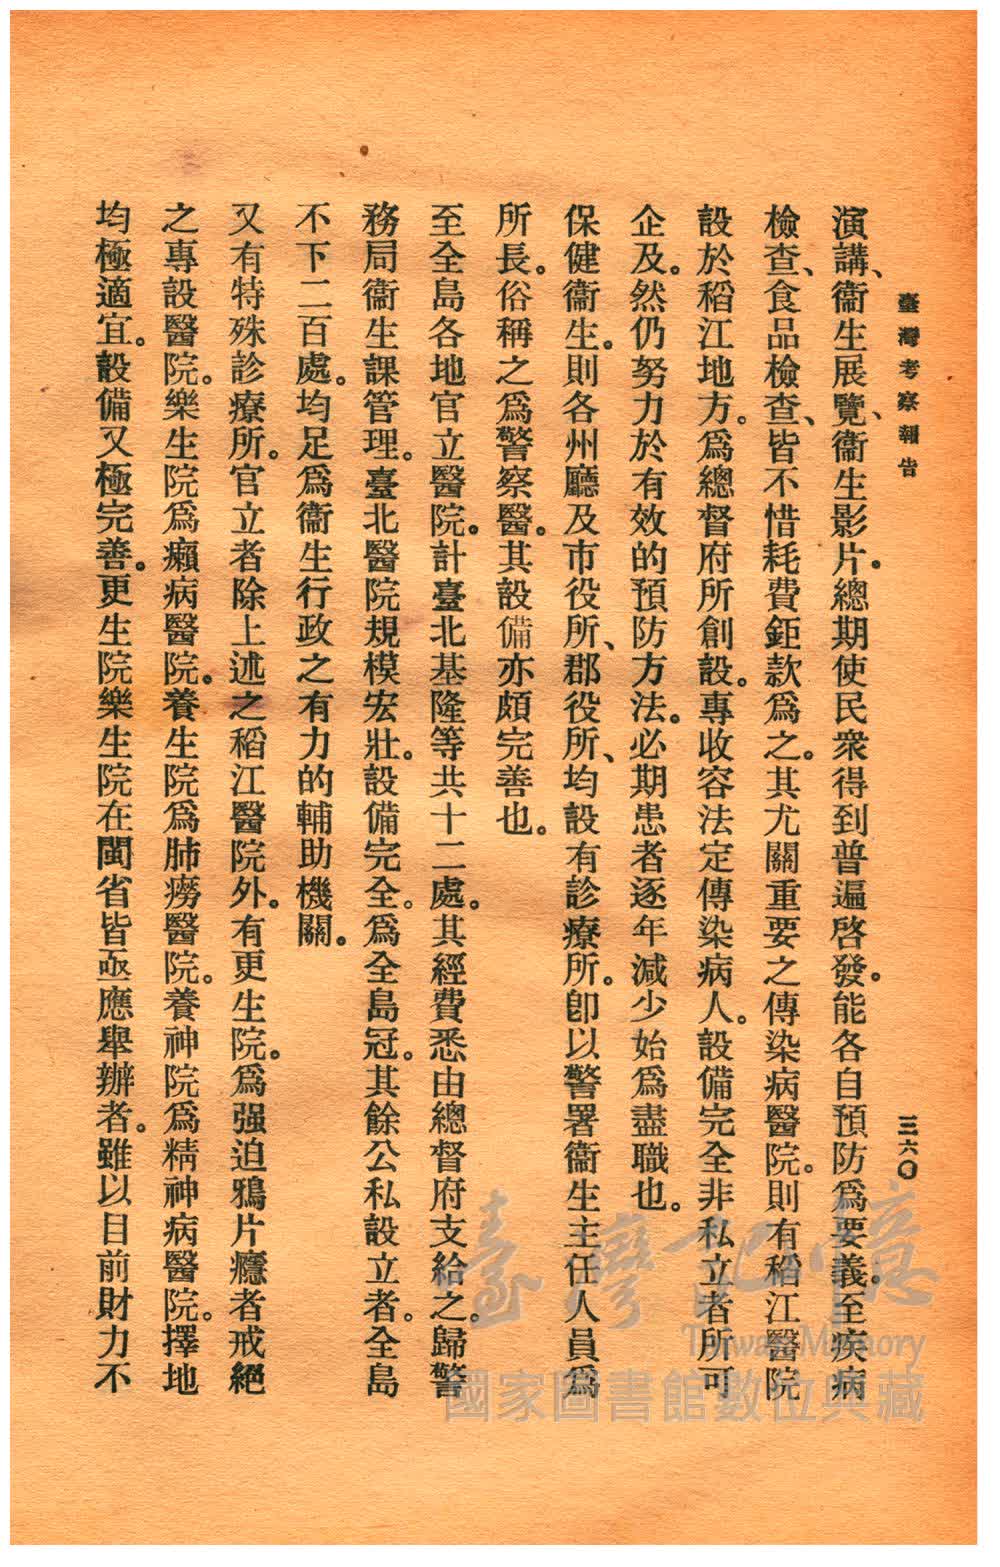 臺灣考察報告
三六〇
演講、衞生展覽、衞生影片。總期使民衆得到普遍啓發。能各自預防爲要義。至疾病
檢查、食品檢查、皆不惜耗費鉅款爲之。其尤關重要之傳染病醫院。則有稻江醫院
設於稻江地方。爲總督府所創設。專收容法定傳染病人。設備完全非私立者所可
企及。然仍努力於有效的預防方法。必期患者逐年減少始爲盡職也。
保健衞生。則各州廳及市役所、郡役所、均設有診療所。卽以警署衞生主任人員爲
所長。俗稱之爲警察醫。其設備亦頗完善也。
至全島各地官立醫院。計臺北基隆等共十二處。其經費悉由總督府支給之。歸警
務局衞生課管理。臺北醫院規模宏壯。設備完全。爲全島冠。其餘公私設立者。全島
不下二百處。均足爲衞生行政之有力的輔助機關。
又有特殊診療所。官立者除上述之稻江醫院外。有更生院。爲强迫鴉片癮者戒絕
之專設醫院。樂生院爲癩病醫院。養生院爲肺癆醫院。養神院爲精神病醫院。擇地
均極適宜。設備又極完善。更生院樂生院在閩省皆亟應舉辦者。雖以目前財力不
臺灣記憶
Taiwan Memory
國家圖書館數位典藏